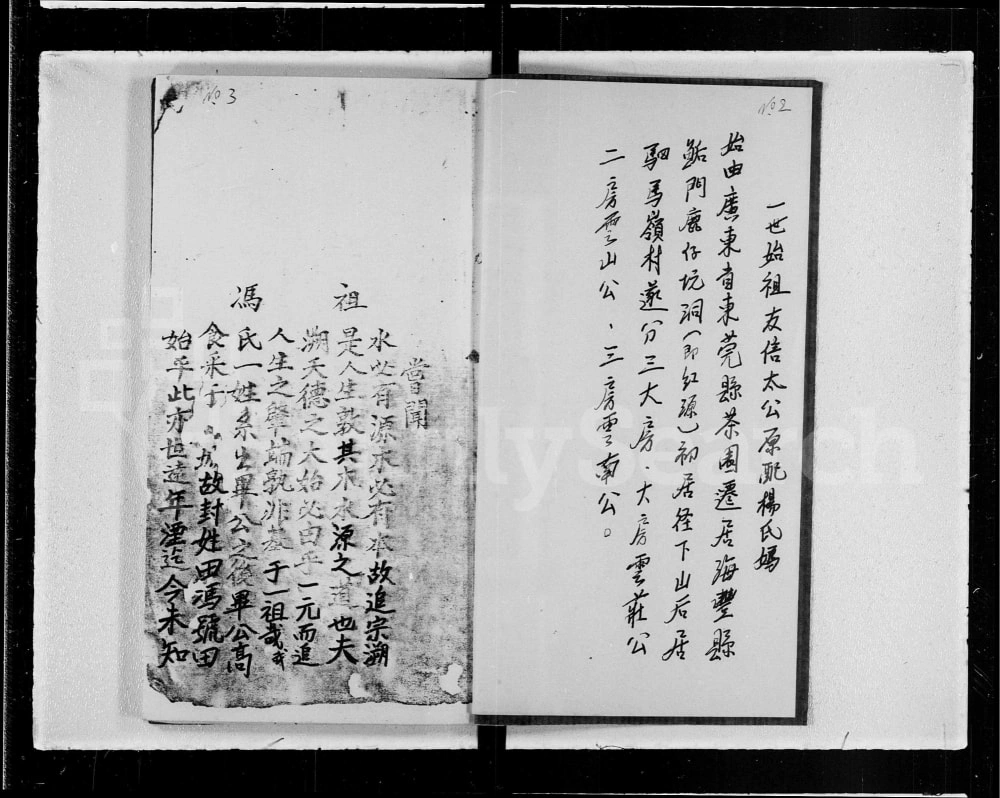 no 2
一世始祖友信太公原配楊氏媽
始由廣東省東莞縣茶園遷居海豐縣
鮜門鹿仔坑洞(即紅源)初居径下山后居
駟馬嶺村遂分三大房.大房雲莊公
二房雲山公、三房雲南公。
no 3
嘗聞
水必有源木必有本故追宗溯
祖是人生敦其木水源之道也夫
溯天德之大始必由乎一元而追
人生之肇端孰非基于一祖哉我
馮氏一姓系出畢公之後畢公高
食采于故封姓田馮號田
始乎此亦世遠年湮迄今未知
FamilySearch